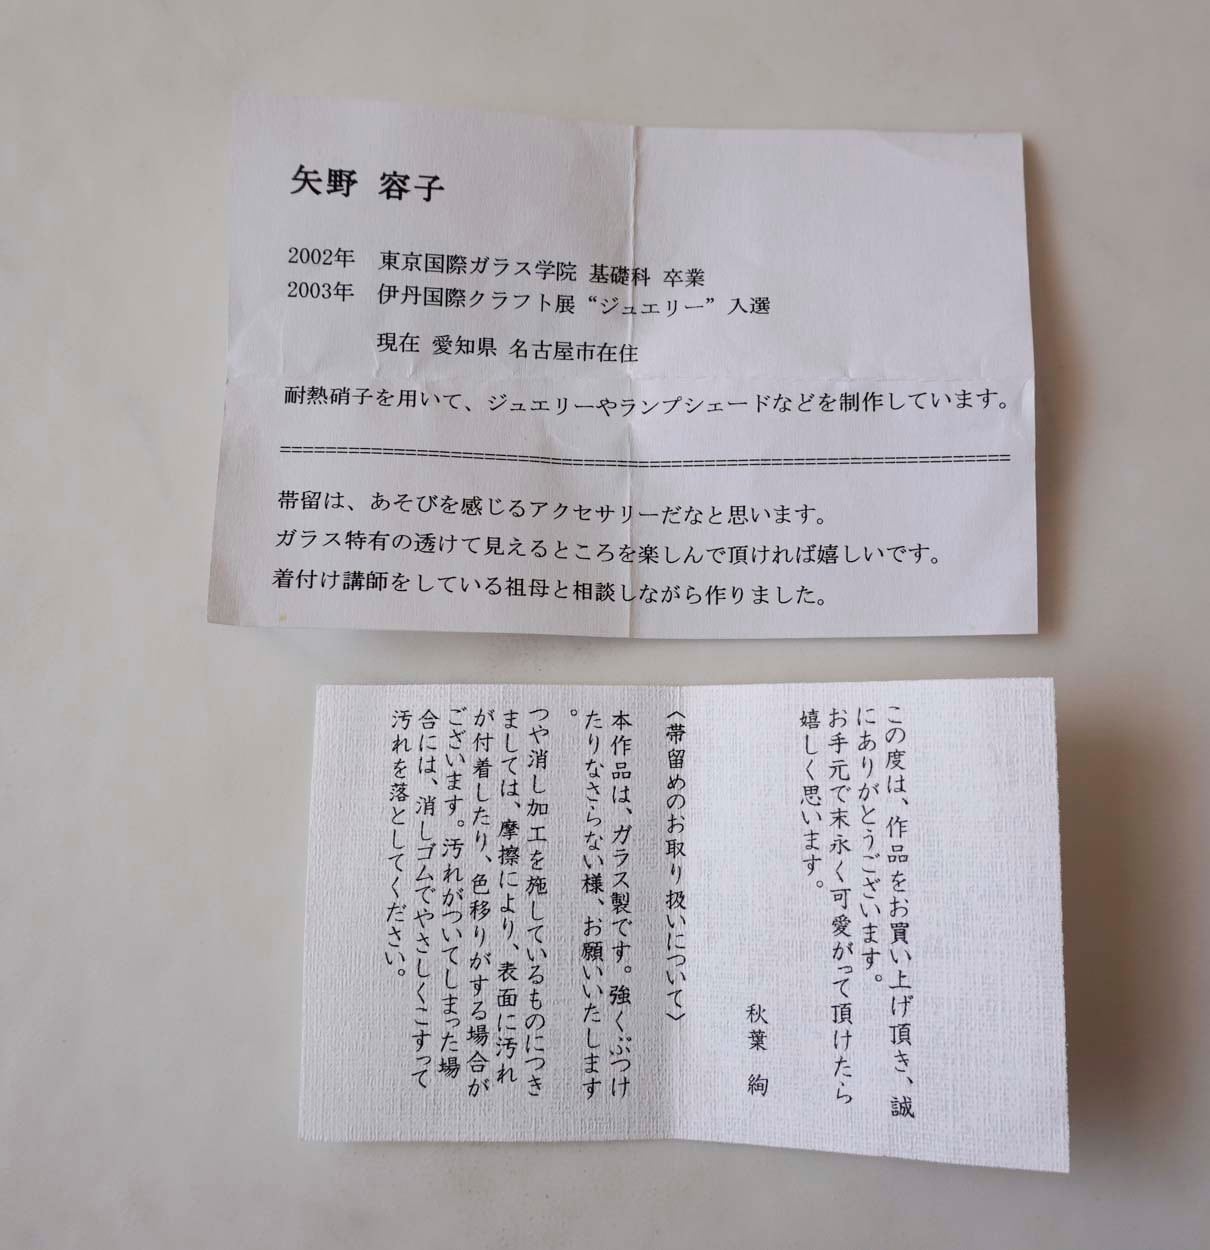 矢野 容子
2002年 東京国際ガラス学院 基礎科 卒業
2003年 伊丹国際クラフト展“ジュエリー”入選
現在 愛知県 名古屋市在住
耐熱硝子を用いて、ジュエリーやランプシェードなどを制作しています。
================================================================
帯留は、あそびを感じるアクセサリーだなと思います。
ガラス特有の透けて見えるところを楽しんで頂ければ嬉しいです。
着付け講師をしている祖母と相談しながら作りました。
この度は、作品をお買い上げ頂き、誠
にありがとうございます。
お手元で末永く可愛がって頂けたら
嬉しく思います。
秋葉 絢
〈帯留めのお取り扱いについて〉
本作品は、ガラス製です。強くぶつけ
たりなさらない様、お願いいたします
。
つや消し加工を施しているものにつき
ましては、摩擦により、表面に汚れ
が付着したり、色移りがする場合が
ございます。汚れがついてしまった場
合には、消しゴムでやさしくこすって
汚れを落としてください。